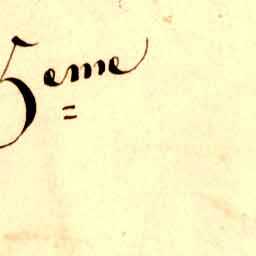 5eme
=